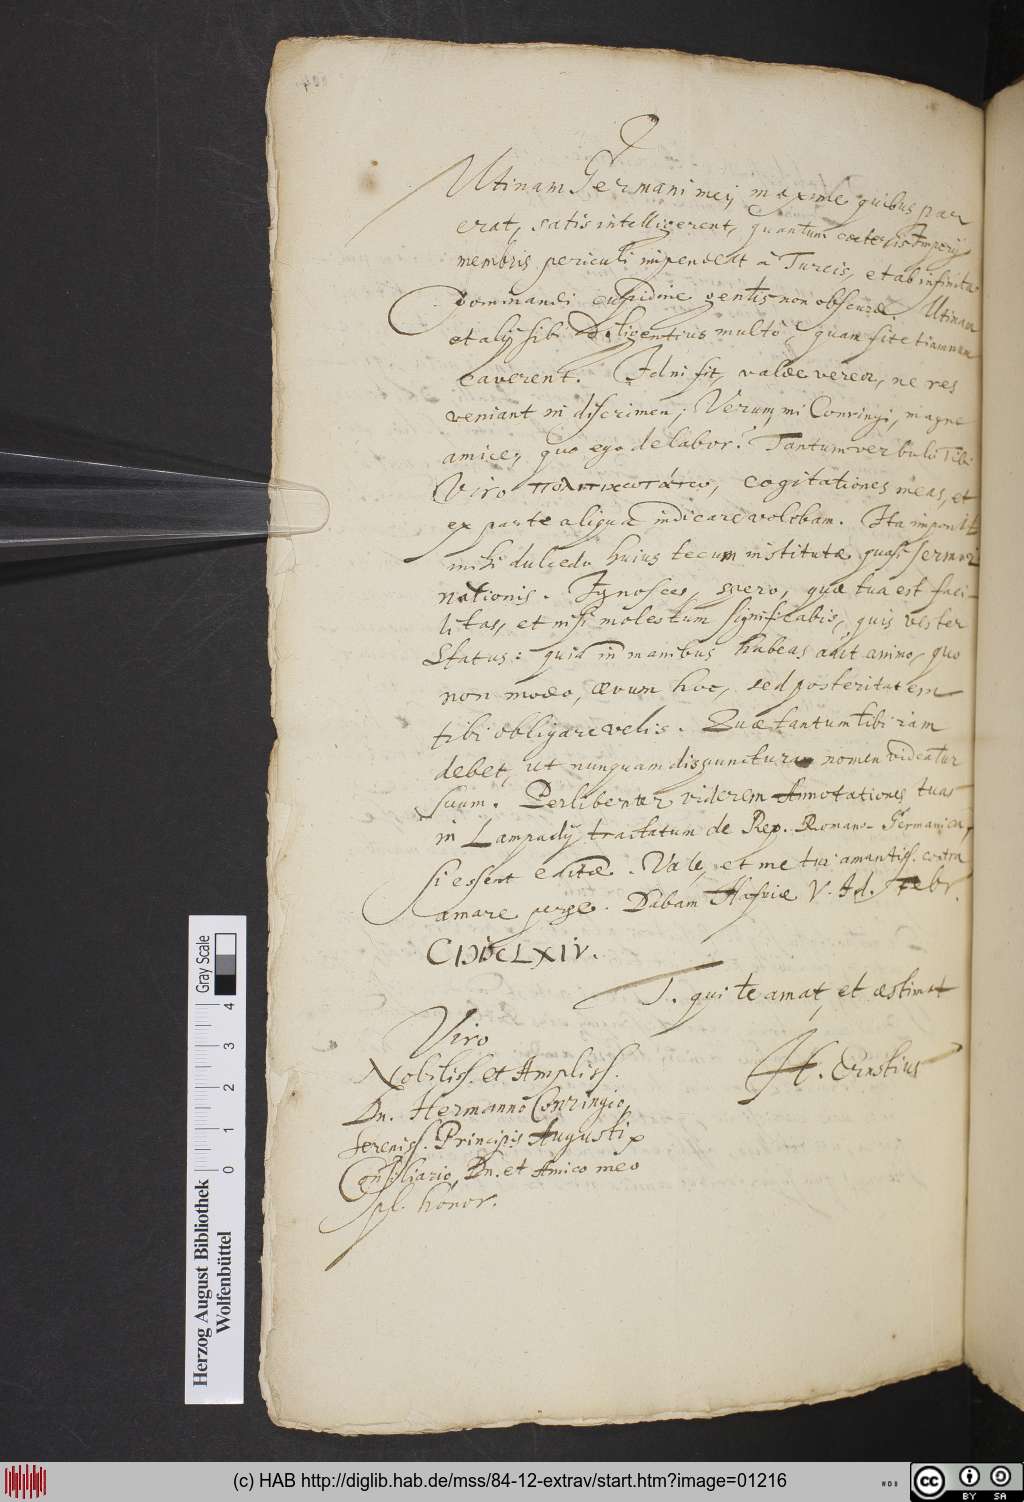 Utinam Germani mei, maxime quibus par
erat, satis intelligerent, quantum cæteris Imperij
membris periculi impendeat à Turcis, et ab infinita
dominandi cupidine gentis non obscuræ. Utinam
et alij sibi diligentius multò, quam fit etiamnum
caverent. Id ni fit, valde vereor, ne res
veniant in discrimen. Verum, mi Conringi, magne
amice, quo ego delabor? Tantum verbulo Tibi
Viro πολιτικωτάτῳ, cogitationes meas, et
ex parte aliqua indicare volebam. Ita imponit
mihi dulcedo huius tecum institutæ quasi sermoci
nationis. Ignosces, spero, quæ tua est faci-
litas, et nisi molestum significabis, quis vester
Status: quid in manibus habeas aut animo, quo
non modo, ævum hoc, sed posteritatem
tibi obligare velis. Quæ tantum tibi iam
debet, ut nunquam dispunctura nomen videatur
suum. Perlibenter viderem Annotationes tuas
in Lampadij tractatum de Rep. Romano-Germanica,
si essent editæ. Vale, et me tui amantiss. contra
amare perge. Dabam Hafniæ V. Id. Febr.
CIƆIƆCLXIV.
T. qui te amat, et æstimat
H. Ernstius
Viro
Nobiliss. et Ampliss.
Dn. Hermanno Conringio,
Sereniss. Principis Augusti
Consiliario, Dn. et Amico meo
pl. honor.
Herzog August Bibliothek
Wolfenbüttel
0 1 2 3 4
Gray Scale
(c) HAB http://diglib.hab.de/mss/84-12-extrav/start.htm?image=01216
cc BY SA